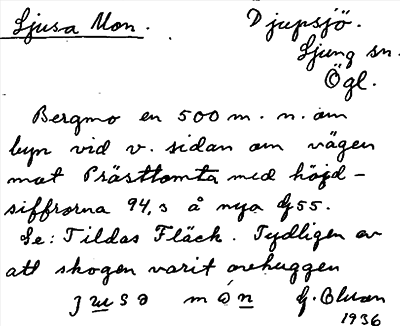 Ljusa Mon. Djupsjö.
Ljung sn.
Ögl.
Bergmo en 500 m. n. om
byn vid v. sidan om vägen
mot Prästtomta med höjd-
siffrorna 94,3 å nya G 55.
Se: Tildas Fläck. Tydligen av
att skogen varit ovehuggen
jusa món G.
1936